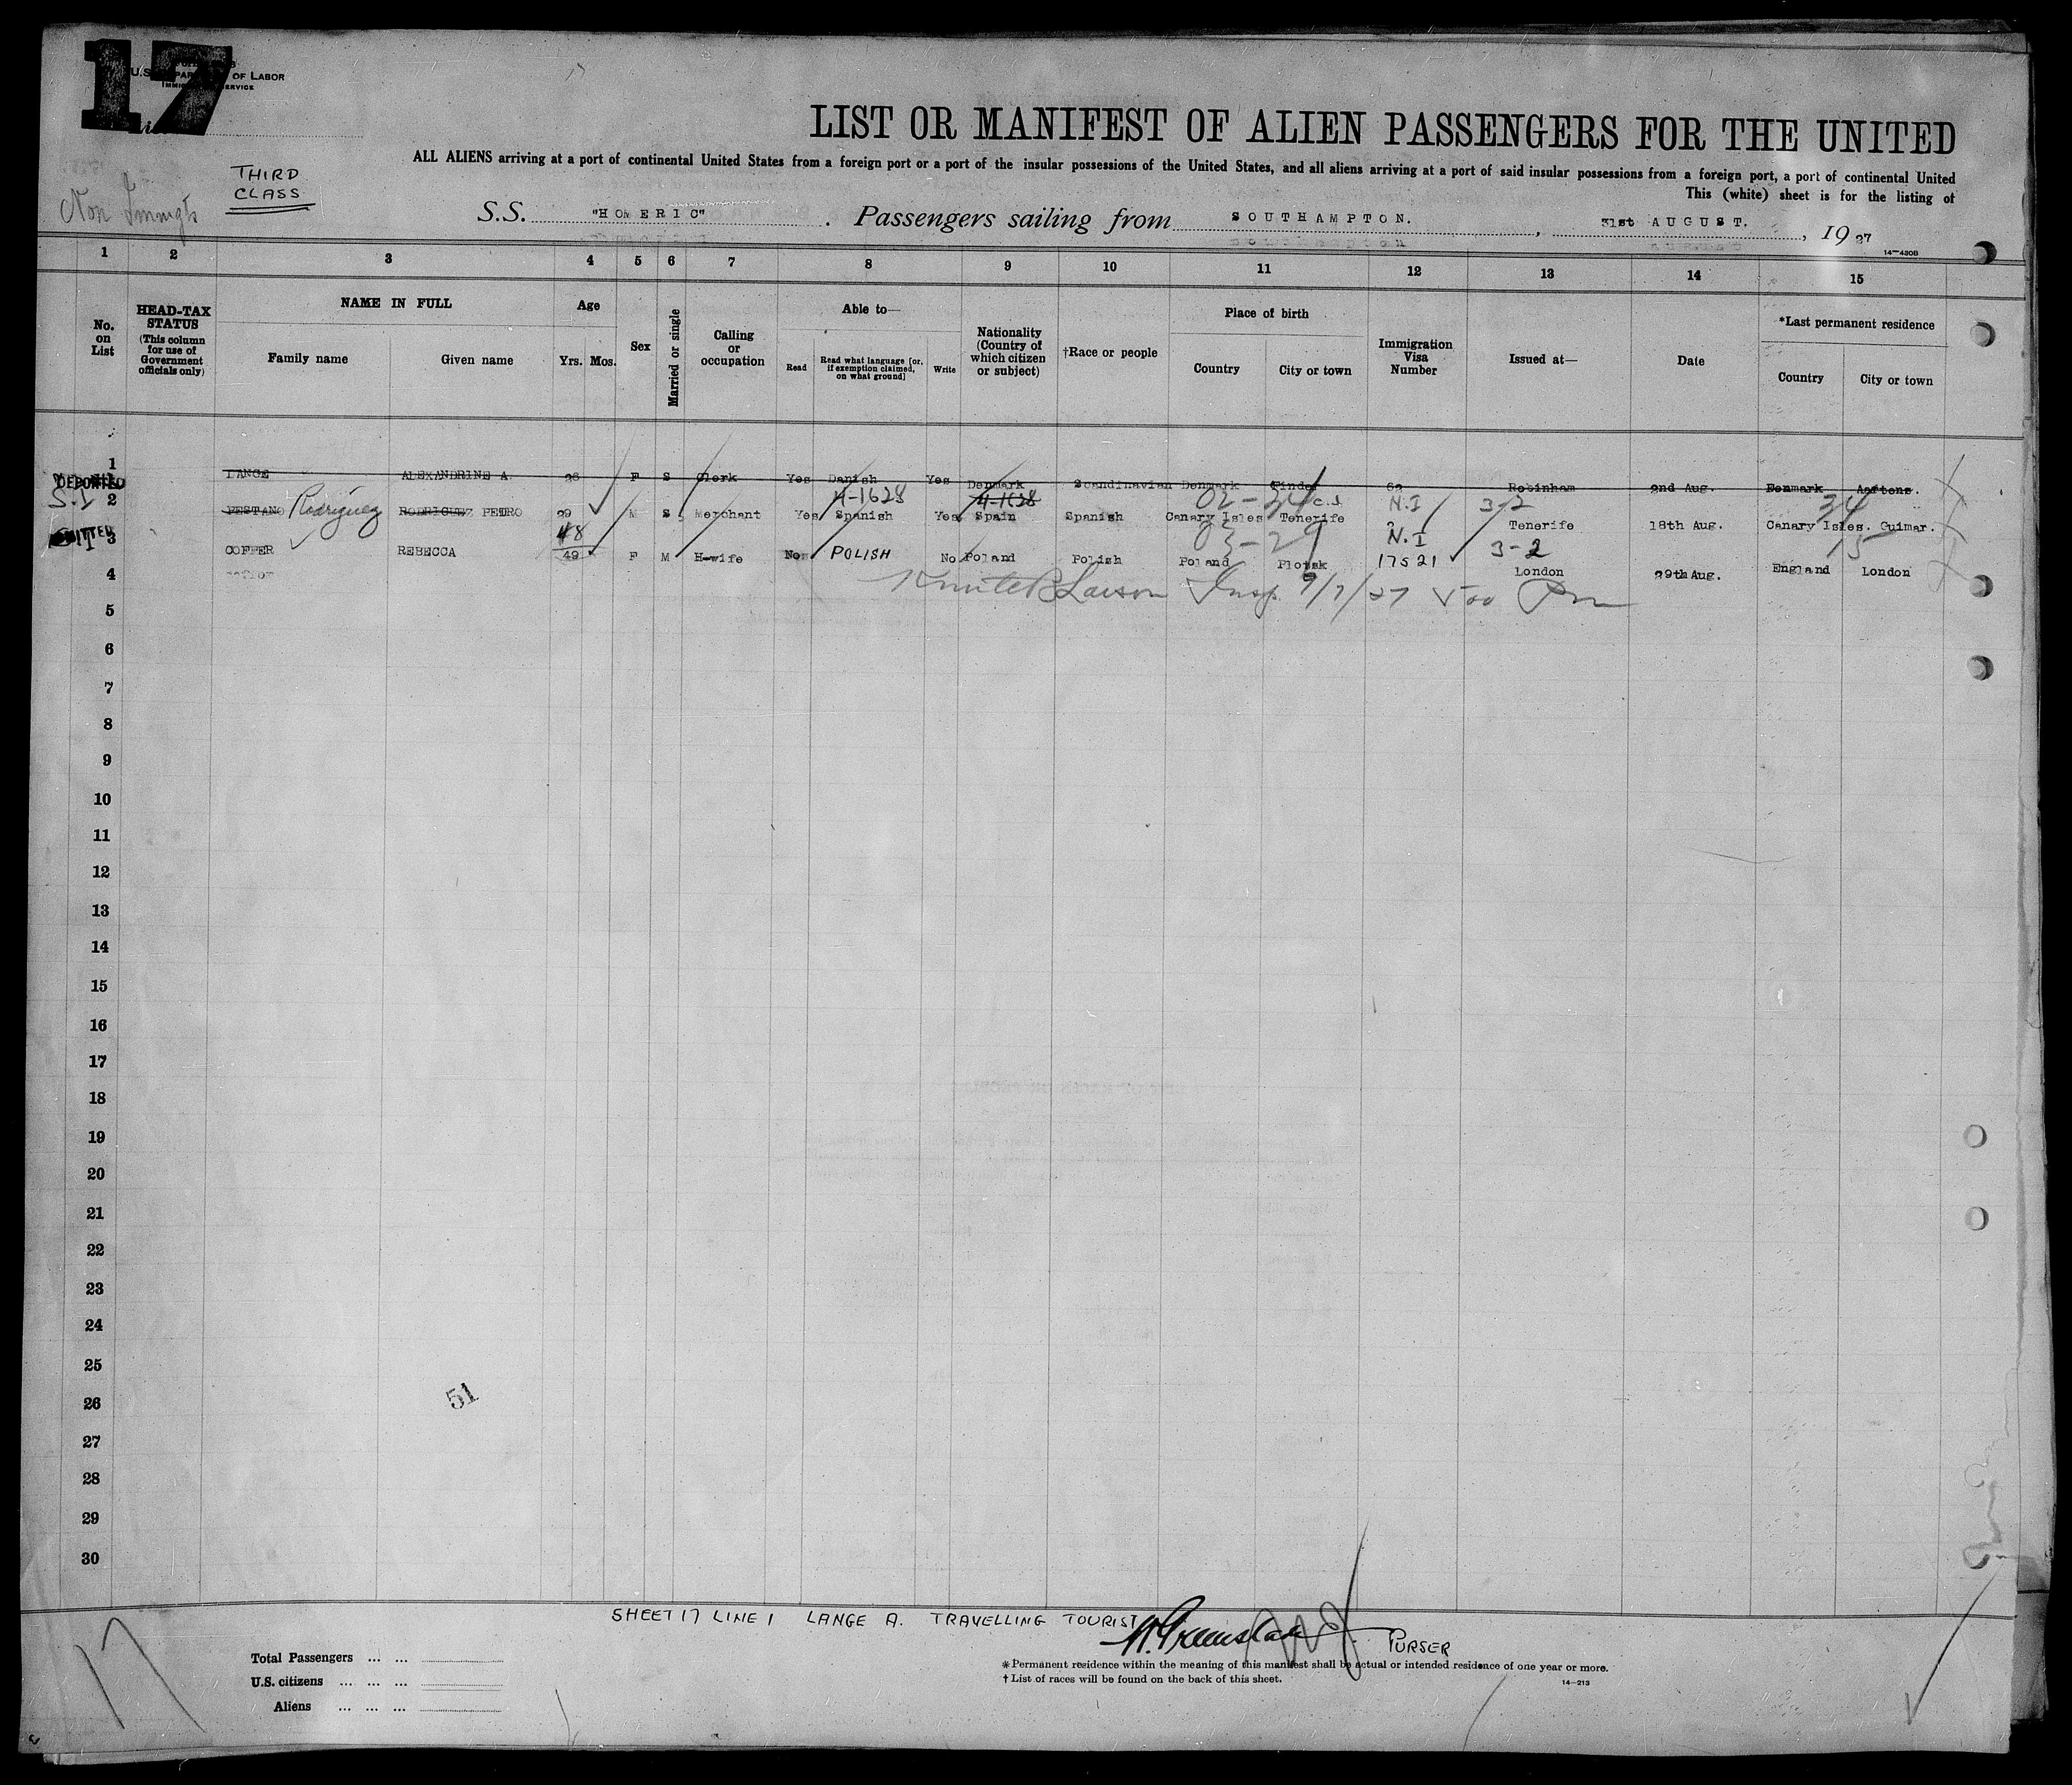 17
U.S. DEPARTMENT OF LABOR
IMMIGRATION SERVICE
LIST OR MANIFEST OF ALIEN PASSENGERS FOR THE UNITED
ALL ALIENS arriving at a port of continental United States from a foreign port or a port of the insular possessions of the United States, and all aliens arriving at a port of said insular possessions from a foreign port, a port of continental United
This (white) sheet is for the listing of
Non Immgts
THIRD
CLASS
S.S. "HOMERIC". Passengers sailing from SOUTHAMPTON., 31st AUGUST., 1927
14-430B
1 2 3 4 5 6 7 8 9 10 11 12 13 14 15
No. on List
HEAD-TAX STATUS (This column for use of Government officials only)
NAME IN FULL
Family name Given name
Age
Yrs. Mos.
Sex
Married or single
Calling or occupation
Able to—
Read Read what language [or, if exemption claimed, on what ground] Write
Nationality (Country of which citizen or subject)
†Race or people
Place of birth
Country City or town
Immigration Visa Number
Issued at—
Date
*Last permanent residence
Country City or town
1 LANGE ALEXANDRINE A 26 F S Clerk Yes Danish Yes Denmark Scandinavian Denmark 62 2nd Aug. Denmark
DEPORTED
S.I 4-1628 4-1628 02-34 C.S. N.I 3-2 34
2 PESTANO Rodriguez RODRIGUEZ PEDRO 29 M S Merchant Yes Spanish Yes Spain Spanish Canary Isles Tenerife Tenerife 18th Aug. Canary Isles. Guimar.
ADMITTED
S.I 48 03-29 N.I 3-2 15
3 COFFER REBECCA 49 F M H-wife No POLISH No Poland Polish Poland Plotsk 17521 London 29th Aug. England London
4
Knute B Larson Insp. 9/7/27
5
6
7
8
9
10
11
12
13
14
15
16
17
18
19
20
21
22
23
24
25
26
27
28
29
30
51
SHEET 17 LINE 1 LANGE A. TRAVELLING TOURIST
PURSER
17
Total Passengers ... ...
U.S. citizens ... ... ...
Aliens ... ... ...
*Permanent residence within the meaning of this manifest shall be actual or intended residence of one year or more.
†List of races will be found on the back of this sheet.
14-213